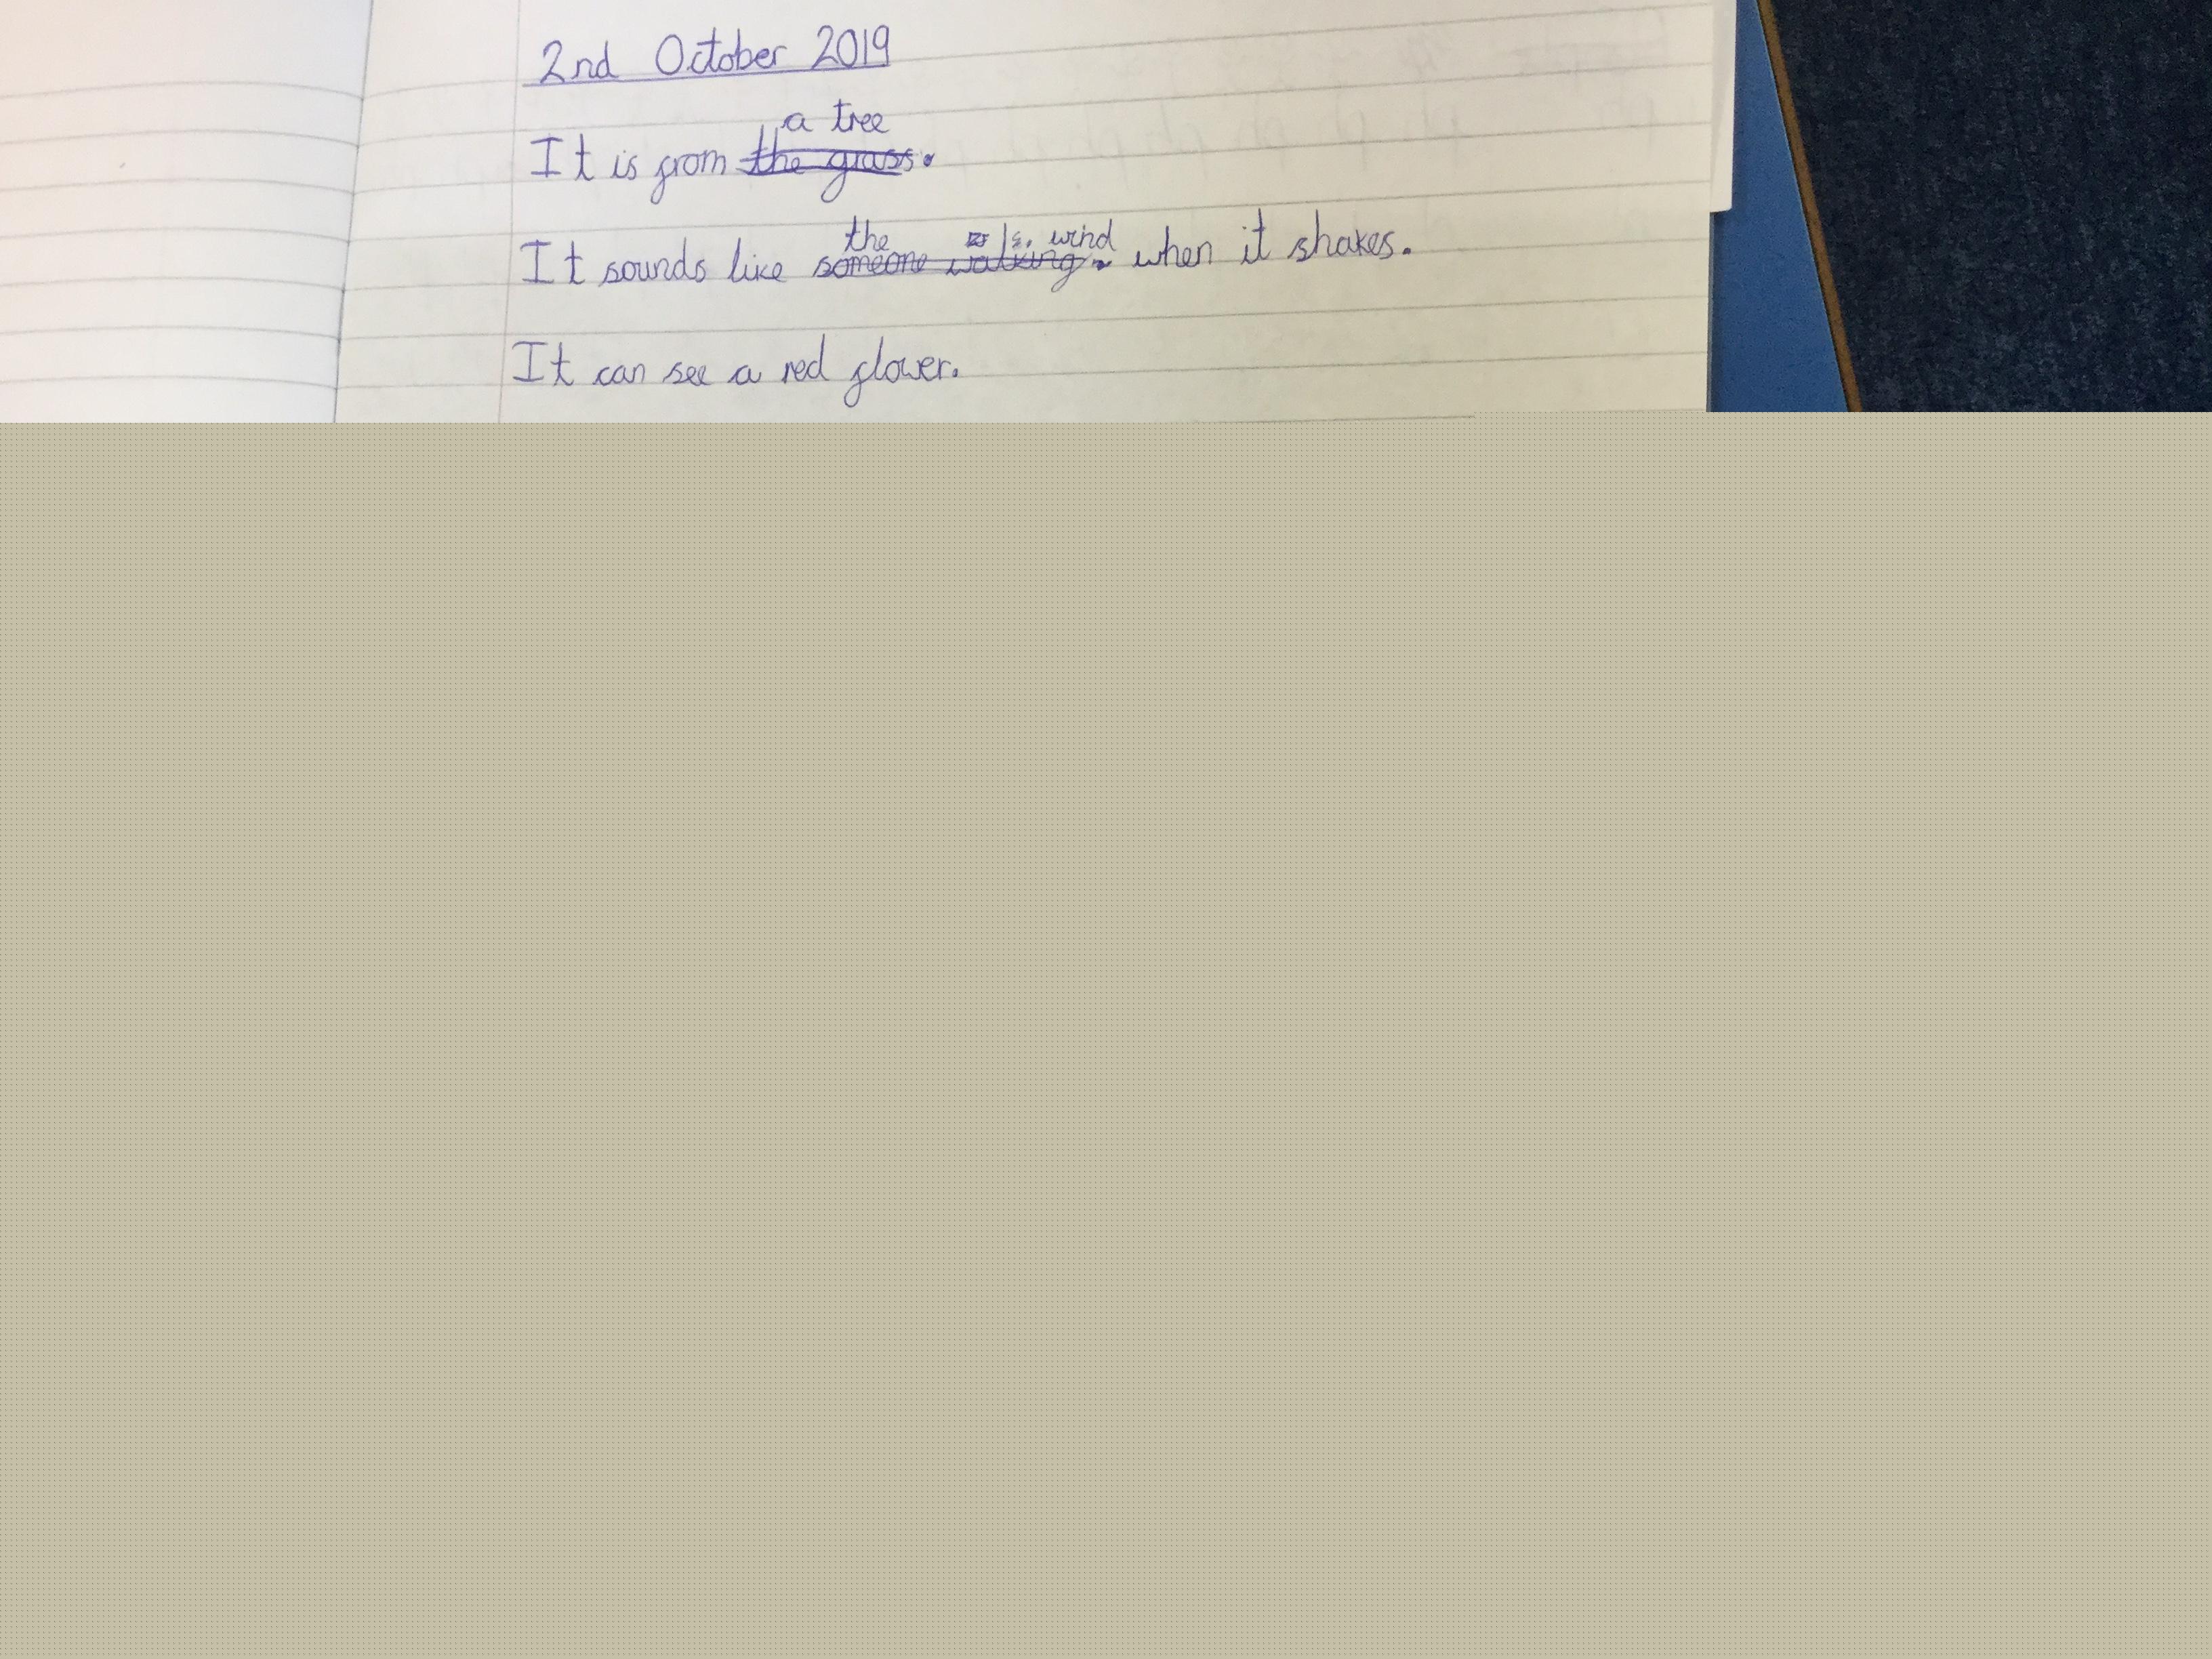 2nd October 2019
a tree
It is from the grass.
the wind
It sounds like someone walking. when it shakes.
It can see a red flower.